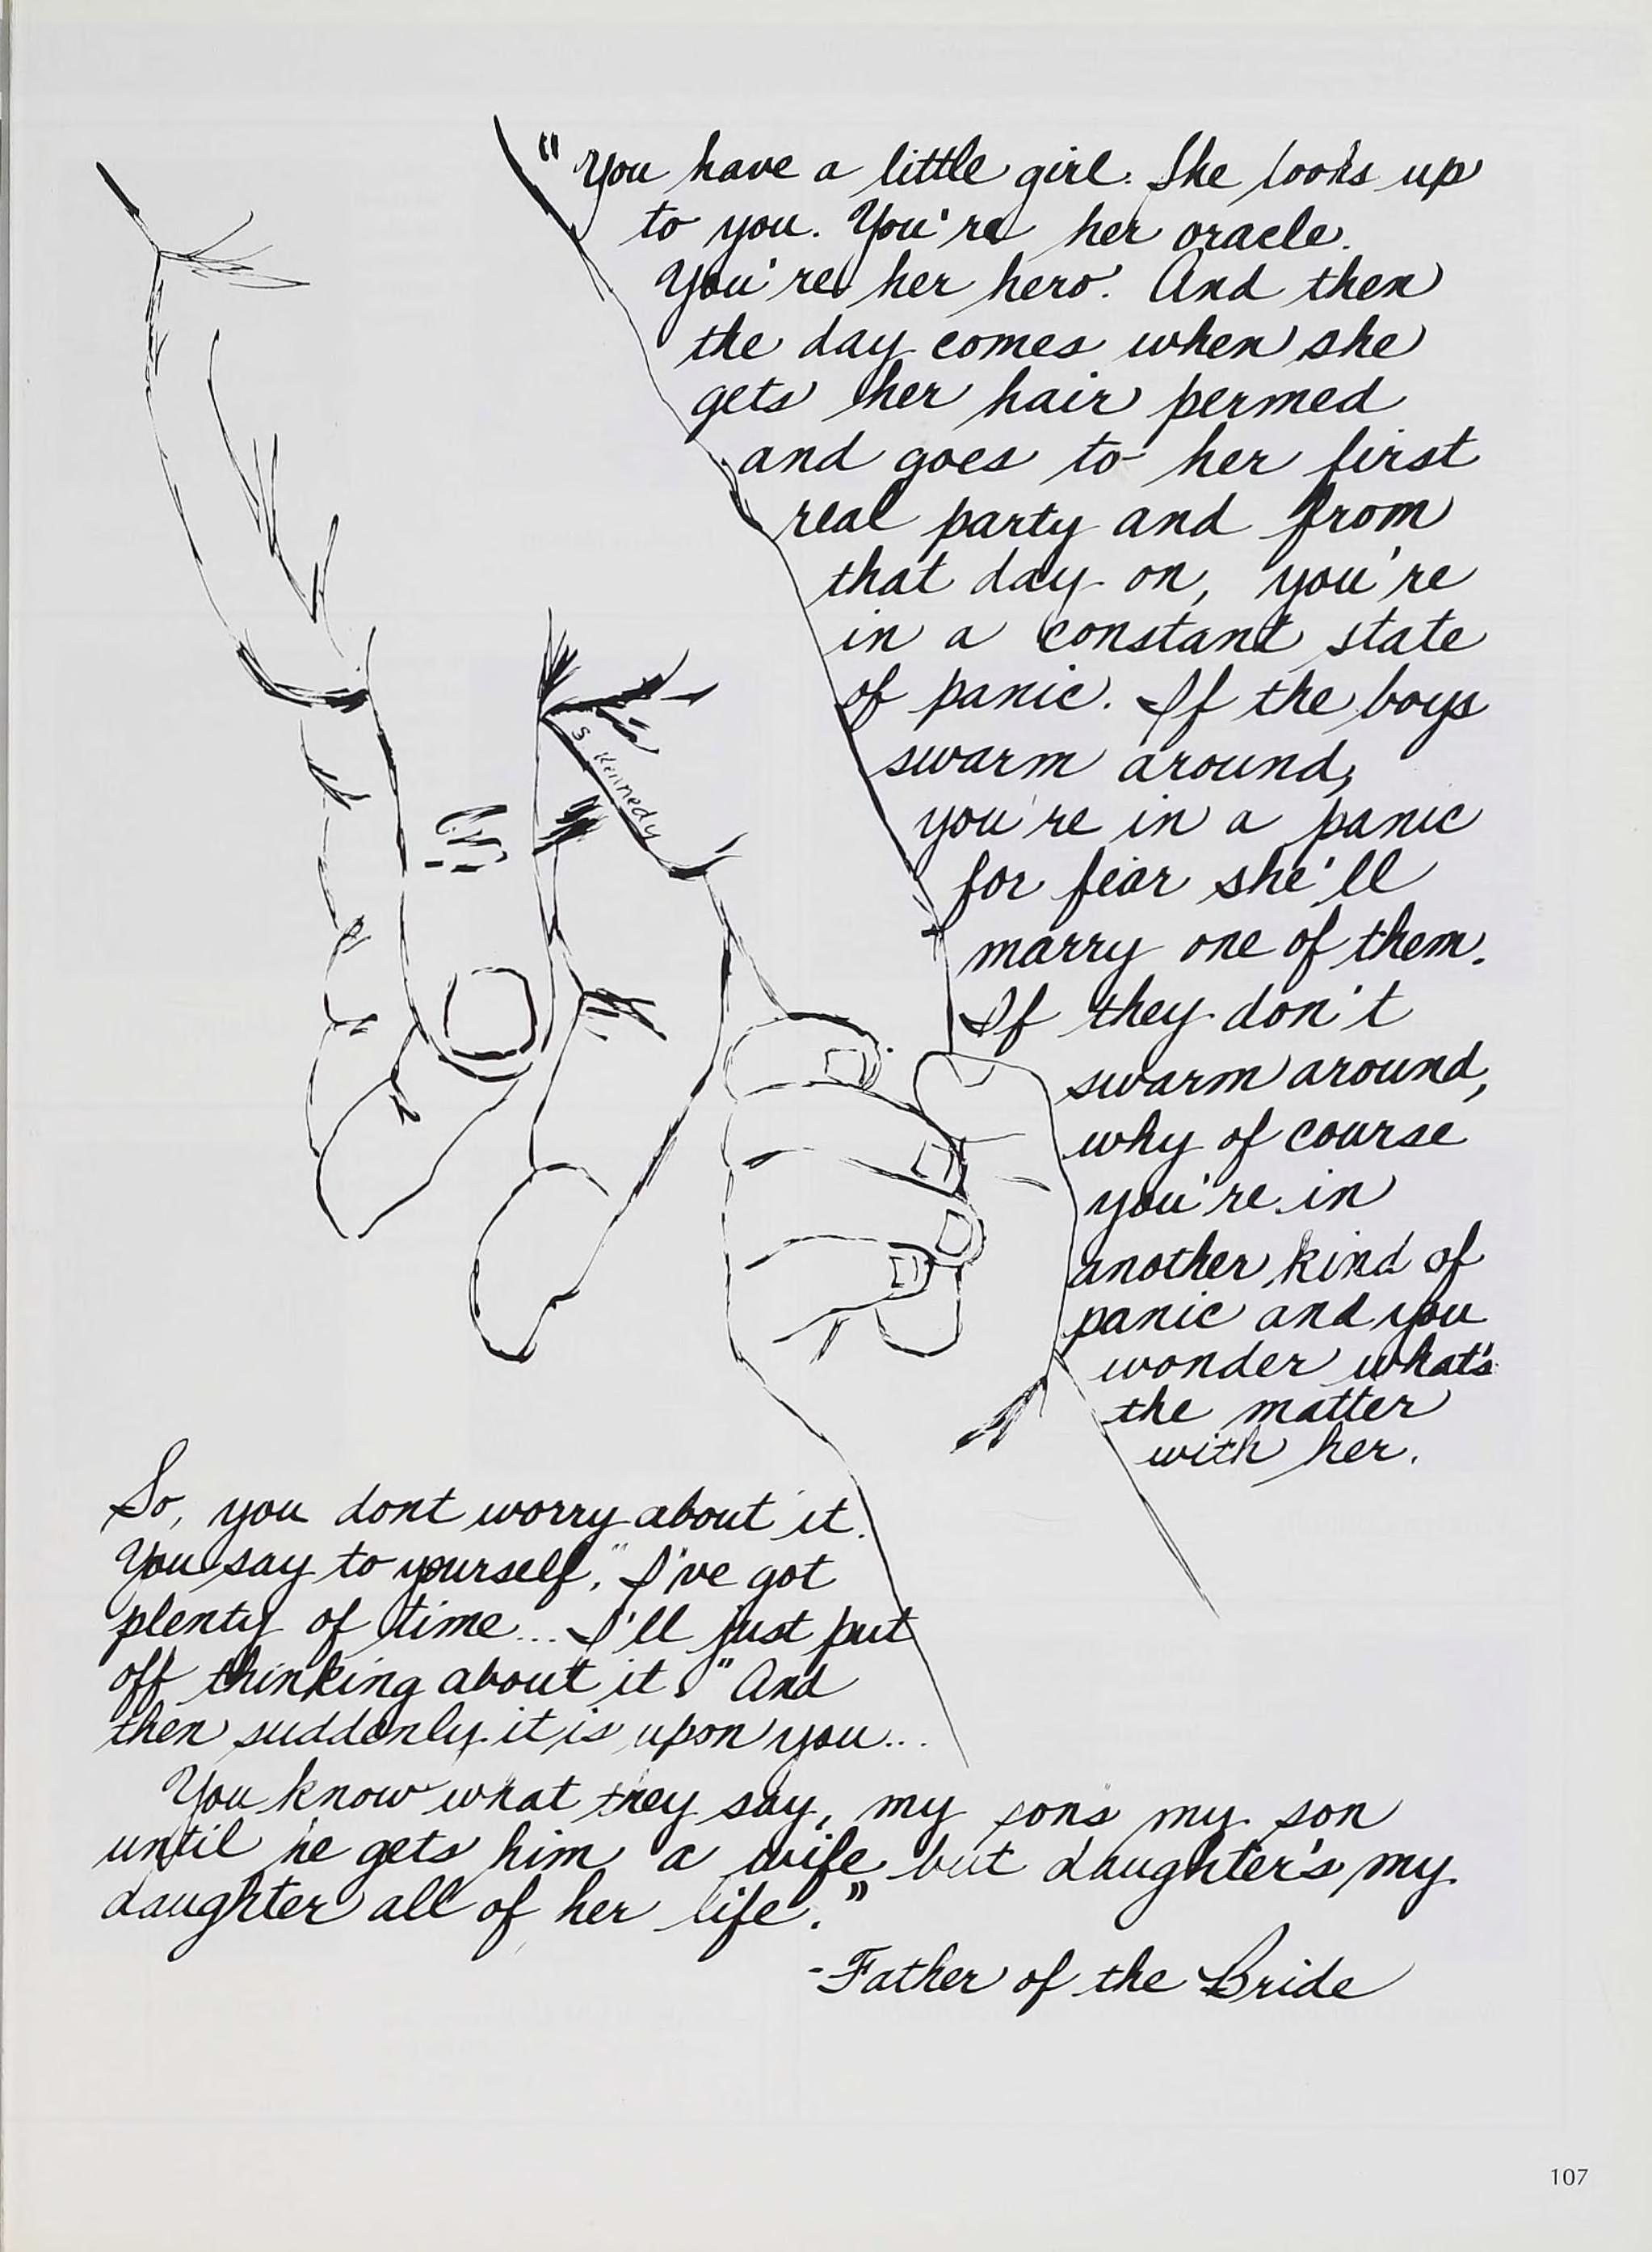 "You have a little girl. She looks up
to you. You're her oracle.
You're her hero. And then
the day comes when she
gets her hair permed
and goes to her first
real party and from
that day on, you're
in a constant state
of panic. If the boys
swarm around,
you're in a panic
for fear she'll
marry one of them.
If they don't
swarm around,
why of course
you're in
another kind of
panic and you
wonder what's
the matter
with her.
S Kennedy
So, you dont worry about it.
You say to yourself, "I've got
plenty of time... I'll just put
off thinking about it." And
then suddenly it is upon you...
You know what they say, my sons my son
until he gets him a wife but daughter's my
daughter all of her life."
-Father of the Bride
107